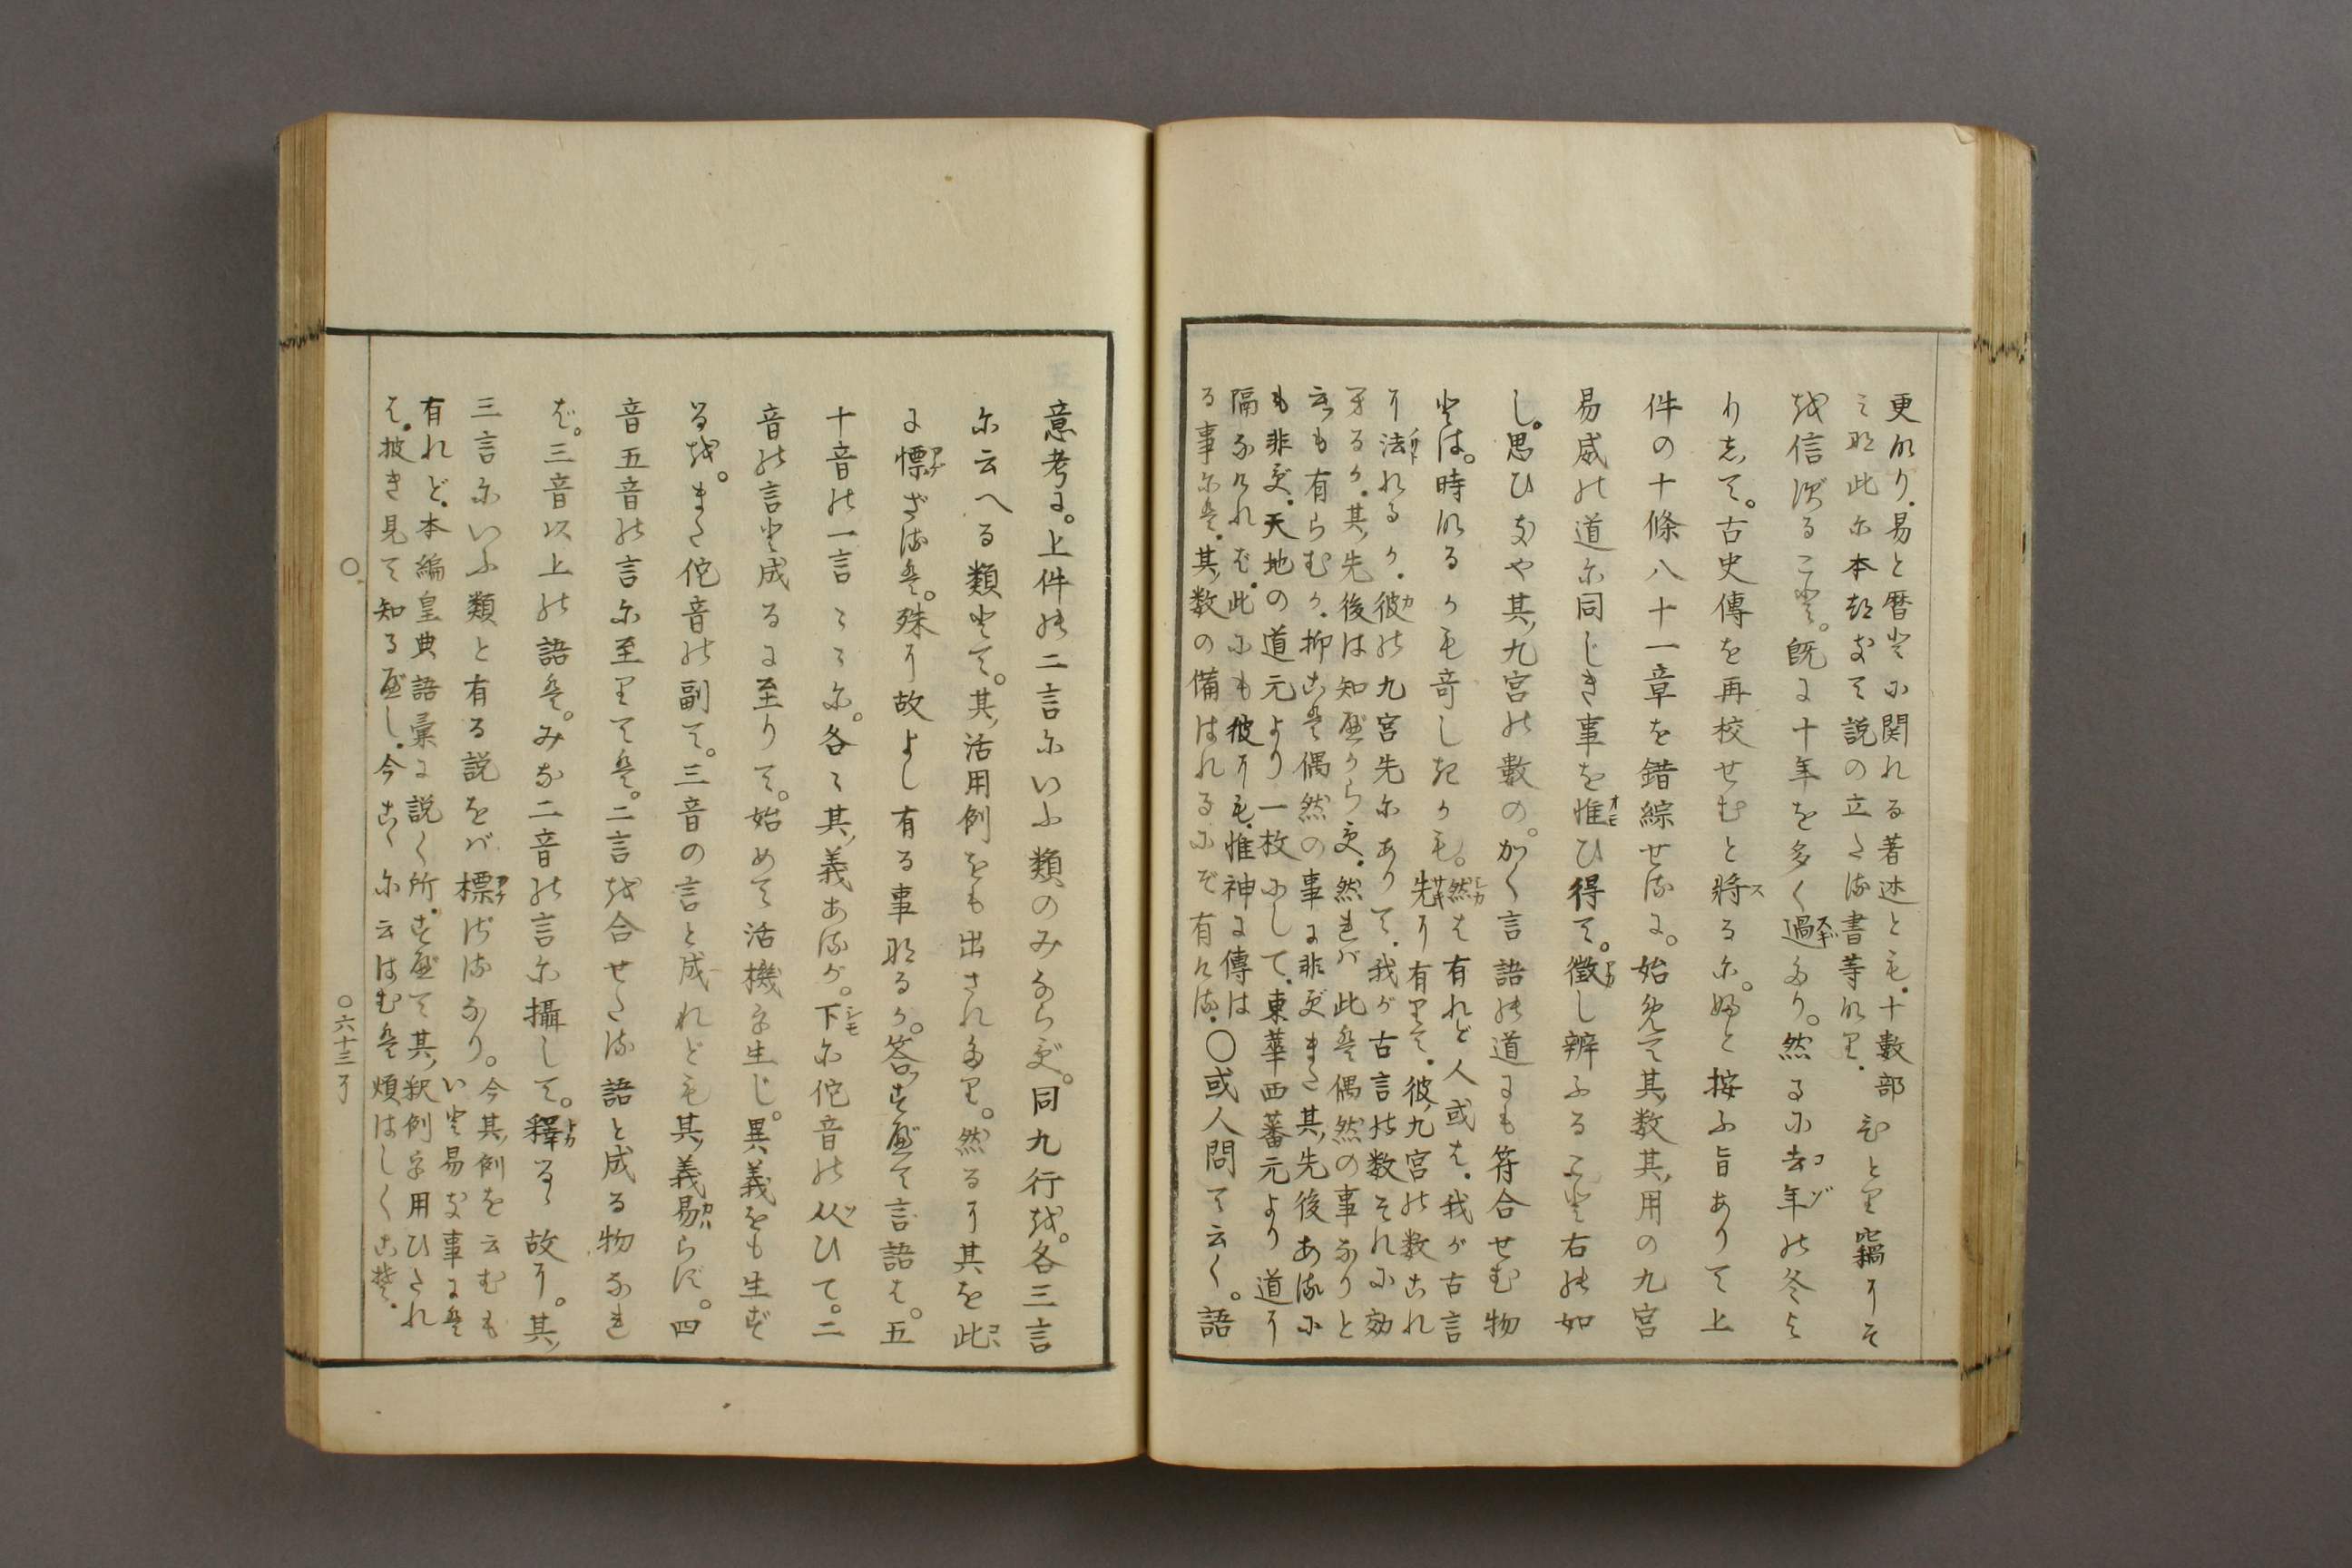 更なり。易と暦とに関れる著述とも。十数部
と此に本部まて説の立たる書等なり。
を信ずること。既に十年を多く過たり。然るに去年の冬より
りして。古史傳を再校せむと将るに。姉と按ふ旨ありて上
件の十條八十一章を錯綜せるに。始めて其数其用の九宮
易威の道に同じき事を惟ひ得て。徴し辨ふること右の如
し。思ひきや其九宮の數の。かく言語の道にも符合せむ物
とは。時なるかも奇しきかも。
然は有れど人或は。我が古言
先に有りて。彼九宮の数これ
に法れるか。彼の九宮先にありて。我が古言の数それに効
るか。其先後は知べからず。然れば此は偶然の事なりと
云も有らむか。抑こは偶然の事に非ず。また其先後あるに
も非ず。天地の道元より一枚にして。東華西蕃元より道に
隔なければ。此にも彼にも。惟神に傳は
る事にて。其数の備はれるにぞ有ける。
〇或人問て云く。語
意考に。上件の二言にいふ類のみならず。同九行を。各三言
に云へる類とて。其活用例をも出されたり。然るに其を此
に標ざるは。殊に故よし有る事なるか。答すべて言語は。五
十音の一言〻〻に。各〻其義あるが。下に佗音の从ひて。二
音の言と成るに至りて。始めて活機を生じ。異義をも生ず
るを。また佗音の副て。三音の言と成れども其義易らず。四
音五音の言に至りては。二言を合せたる語と成る物なれ
ば。三音以上の語は。みな二音の言に攝して。釋るゝ故に。其
三言にいふ類と有る説をば標ざるなり。
今其例を云むも
いと易き事には
有れど。本編皇典語彙に説く所。すべて其釈例を用ひたれ
ば。披き見て知るべし。今こゝに云はむは煩はしくこそ。
〇
〇六十三丁